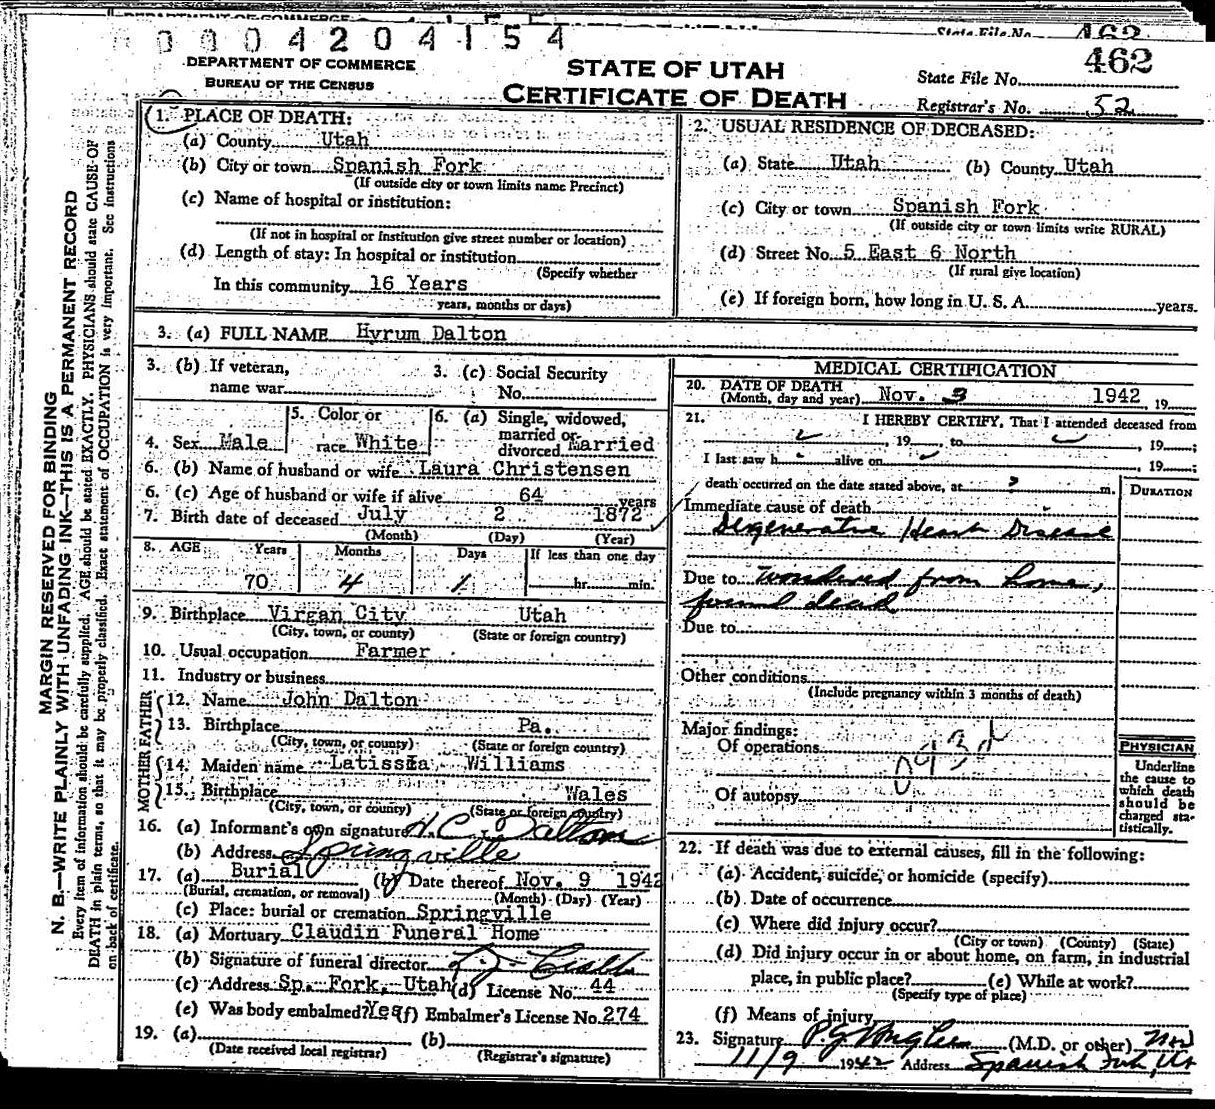 0 0 0 4 2 0 4 1 5 4
State File No. 462
DEPARTMENT OF COMMERCE
BUREAU OF THE CENSUS
STATE OF UTAH
CERTIFICATE OF DEATH
State File No. 462
Registrar's No. 52
MARGIN RESERVED FOR BINDING
N. B.—WRITE PLAINLY WITH UNFADING INK—THIS IS A PERMANENT RECORD
Every item of information should be carefully supplied. AGE should be stated EXACTLY. PHYSICIANS should state CAUSE OF
DEATH in plain terms, so that it may be properly classified. Exact statement of OCCUPATION is very important. See instructions
on back of certificate.
1. PLACE OF DEATH:
(a) County Utah
(b) City or town Spanish Fork
(If outside city or town limits name Precinct)
(c) Name of hospital or institution:
(If not in hospital or institution give street number or location)
(d) Length of stay: In hospital or institution
(Specify whether
In this community 16 Years
years, months or days)
2. USUAL RESIDENCE OF DECEASED:
(a) State Utah (b) County Utah
(c) City or town Spanish Fork
(If outside city or town limits write RURAL)
(d) Street No. 5 East 6 North
(If rural give location)
(e) If foreign born, how long in U. S. A. years.
3. (a) FULL NAME Hyrum Dalton
3. (b) If veteran,
name war
3. (c) Social Security
No.
4. Sex Male
5. Color or
race White
6. (a) Single, widowed,
married or
divorced Married
6. (b) Name of husband or wife Laura Christensen
6. (c) Age of husband or wife if alive 64 years
7. Birth date of deceased July 2 1872
(Month) (Day) (Year)
8. AGE Years Months Days If less than one day
70 4 1 hr. min.
9. Birthplace Virgan City Utah
(City, town, or county) (State or foreign country)
10. Usual occupation Farmer
11. Industry or business
FATHER
12. Name John Dalton
13. Birthplace Pa.
(City, town, or county) (State or foreign country)
MOTHER
14. Maiden name Latissia Williams
15. Birthplace Wales
(City, town, or county) (State or foreign country)
16. (a) Informant's own signature H. C. Dalton
(b) Address Springville
17. (a) Burial (b) Date thereof Nov. 9 1942
(Burial, cremation, or removal) (Month) (Day) (Year)
(c) Place: burial or cremation Springville
18. (a) Mortuary Claudin Funeral Home
(b) Signature of funeral director
(c) Address Sp. Fork, Utah (d) License No. 44
(e) Was body embalmed? Yes (f) Embalmer's License No. 274
19. (a) (b)
(Date received local registrar) (Registrar's signature)
MEDICAL CERTIFICATION
20. DATE OF DEATH
(Month, day and year) Nov. 3 1942, 19
21. I HEREBY CERTIFY, That I attended deceased from
, 19 , to , 19 ;
I last saw h alive on , 19 ;
death occurred on the date stated above, at ? m.
DURATION
Immediate cause of death
Degenerative Heart Disease
Due to wondered from home,
found dead
Due to
Other conditions
(Include pregnancy within 3 months of death)
Major findings:
Of operations
093d
Of autopsy
PHYSICIAN
Underline
the cause to
which death
should be
charged sta-
tistically.
22. If death was due to external causes, fill in the following:
(a) Accident, suicide, or homicide (specify)
(b) Date of occurrence
(c) Where did injury occur?
(City or town) (County) (State)
(d) Did injury occur in or about home, on farm, in industrial
place, in public place? (e) While at work?
(Specify type of place)
(f) Means of injury
23. Signature (M.D. or other)
11/9 1942 Address Spanish Fork, Ut